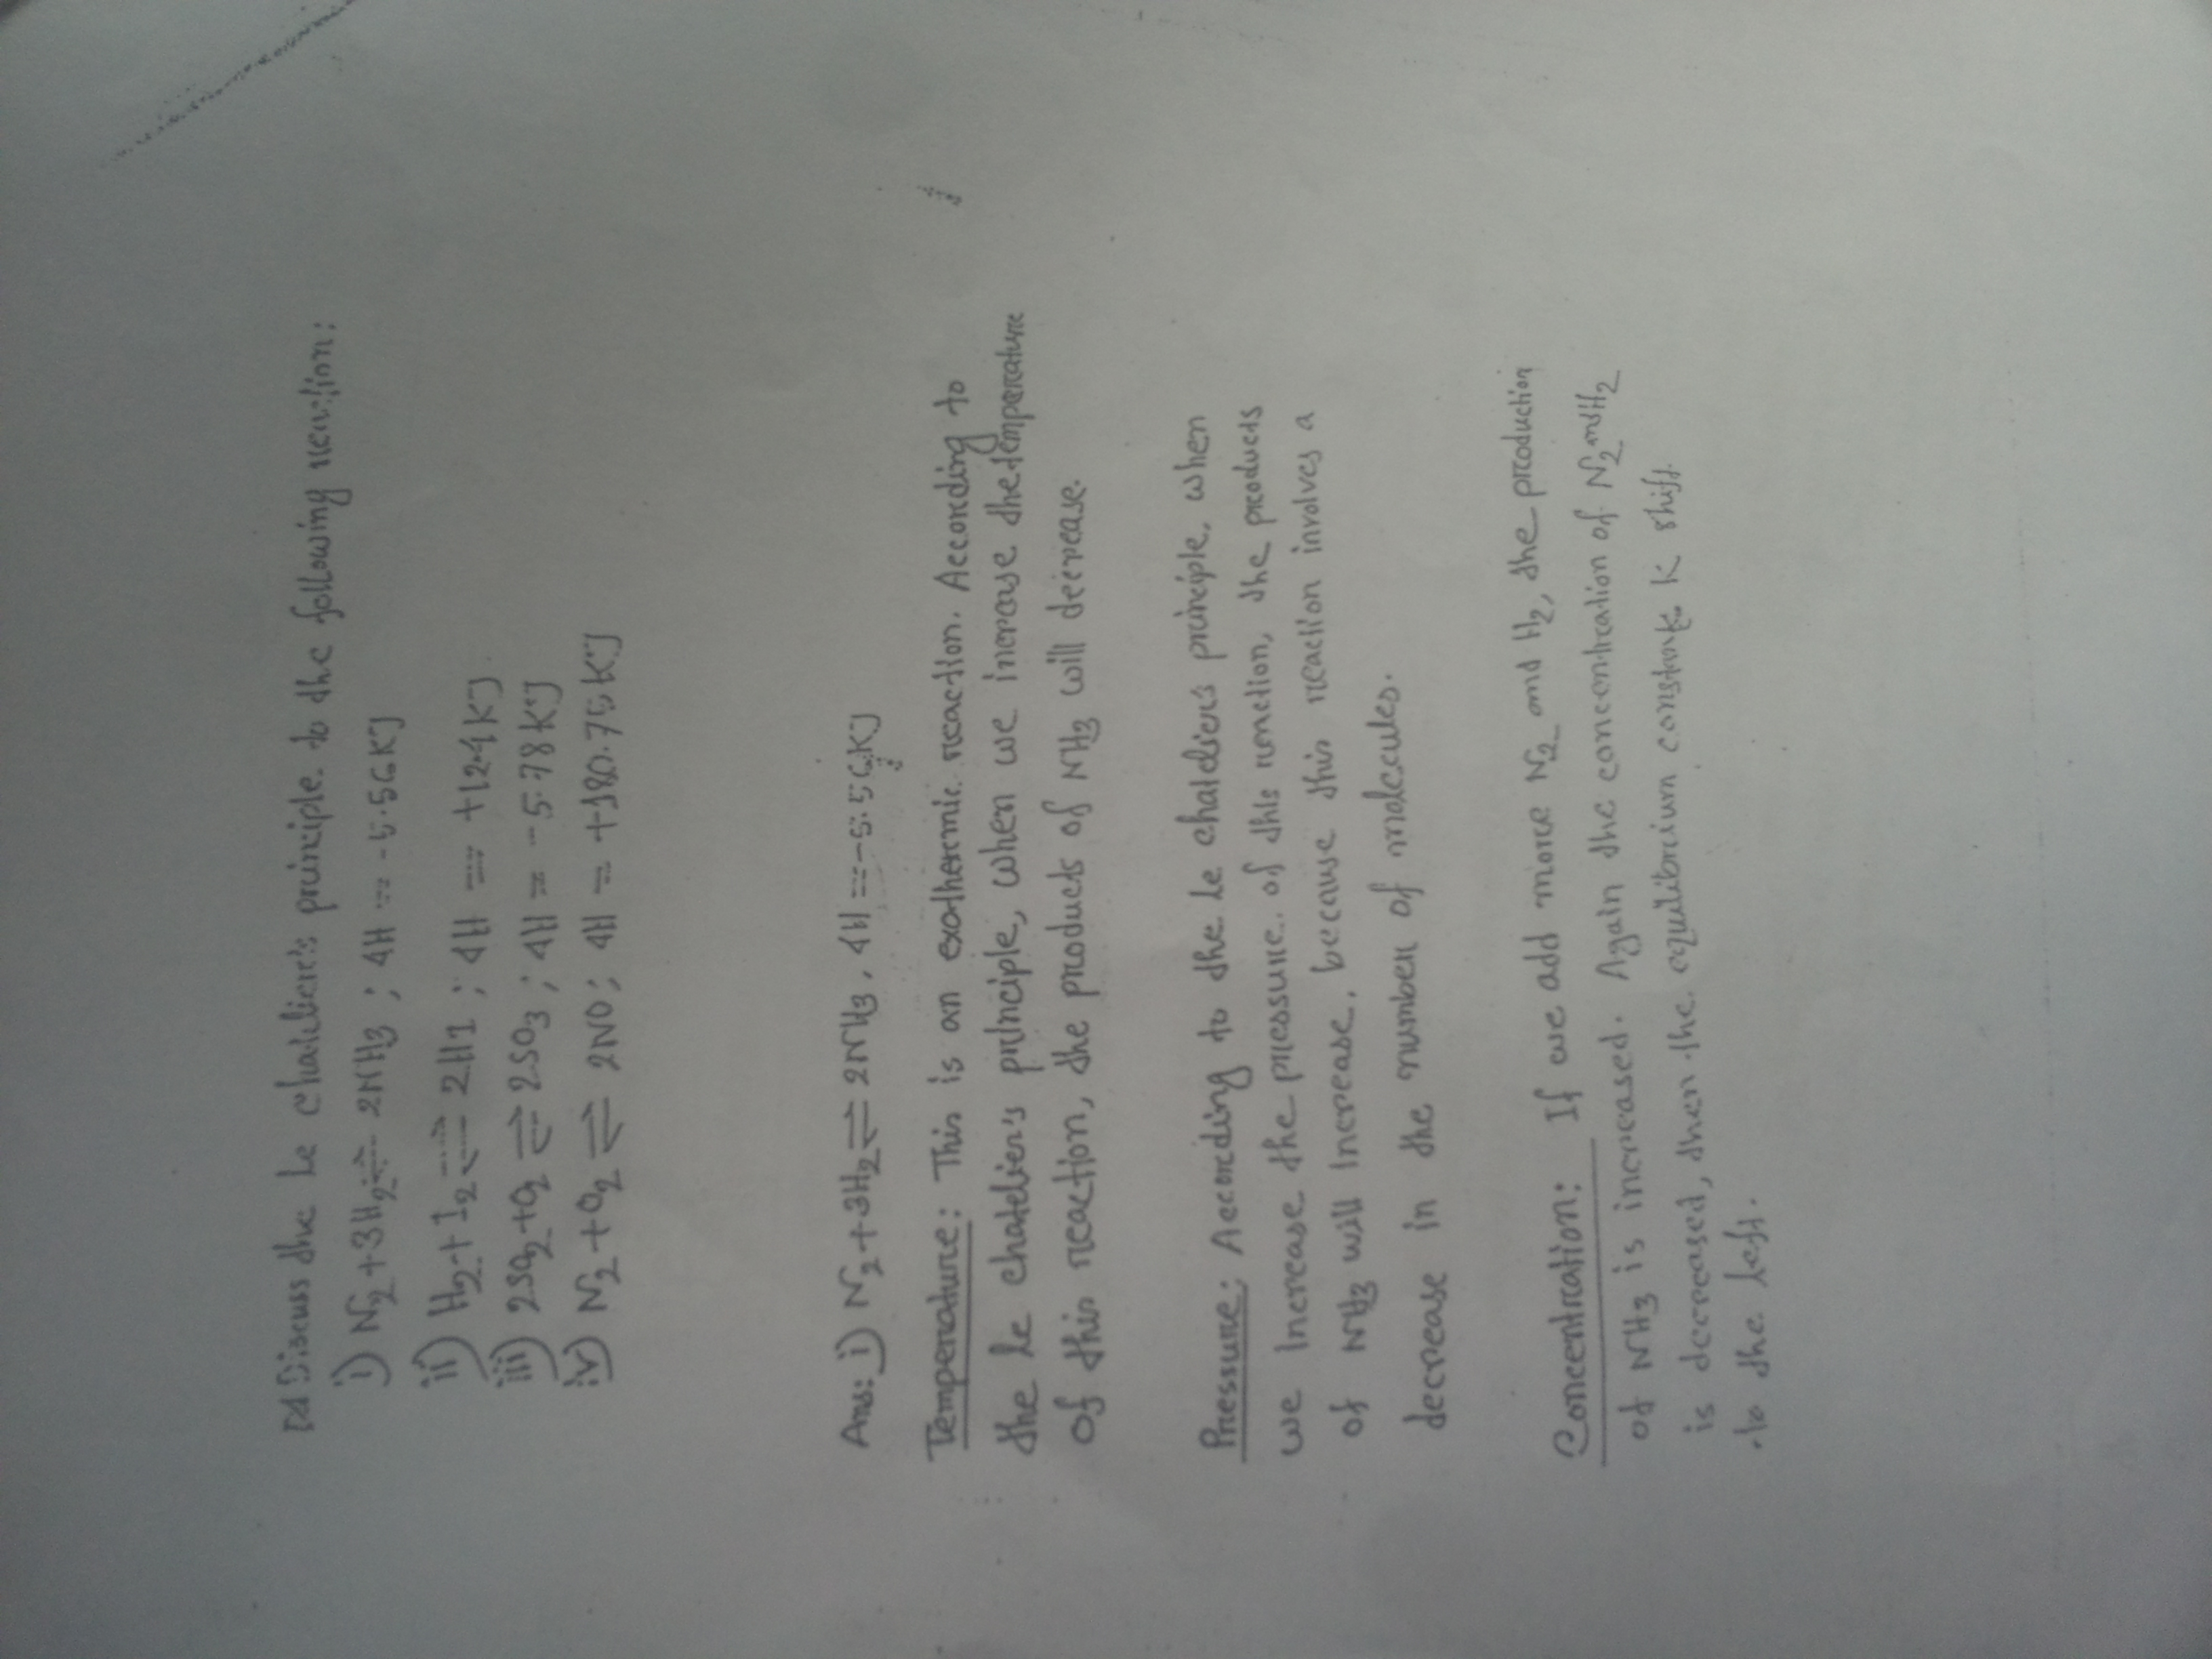 Discuss the Le Chatelier's principle to the following reaction:
i) N₂ + 3H₂ ⇌ 2NH₃ ; ΔH = -5.56KJ
ii) H₂ + I₂ ⇌ 2HI ; ΔH = +12.4KJ
iii) 2SO₂ + O₂ ⇌ 2SO₃ ; ΔH = -5.78KJ
iv) N₂ + O₂ ⇌ 2NO ; ΔH = +180.75KJ
Ans: i) N₂ + 3H₂ ⇌ 2NH₃, ΔH = -5.56KJ
Temperature: This is an exothermic reaction. According to
the Le Chatelier's principle, when we increase the temperature
of this reaction, the products of NH₃ will decrease.
Pressure: According to the Le Chatelier's principle, when
we Increase the pressure of this reaction, the products
of NH₃ will Increase, because this reaction involves a
decrease in the number of molecules.
Concentration: If we add more N₂ and H₂, the production
of NH₃ is increased. Again the concentration of N₂ and H₂
is decreased, then the equilibrium constant K shift
to the left.